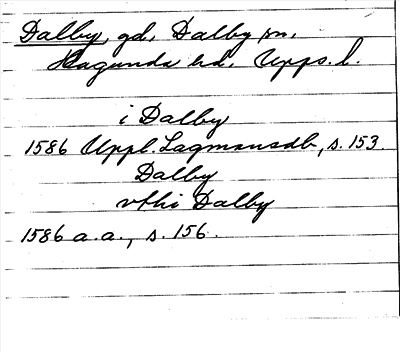 Dalby, gd, Dalby sn,
Hagunda hd, Upps. l.
i Dalby
1586 Uppl. Lagmansdb, s. 153.
Dalby
vthi Dalby
1586 a.a., s. 156.